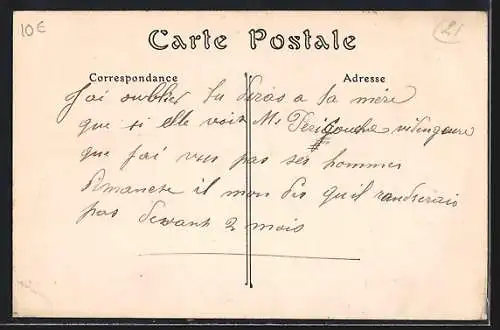 10€
21
Carte Postale
Correspondance
Adresse
J'ai oublier tu diras a ta mère
que si elle voit Mr
que j'ai vus pas ses hommes
dimanche il mon dis qu'il randserais
pas devant 2 mois